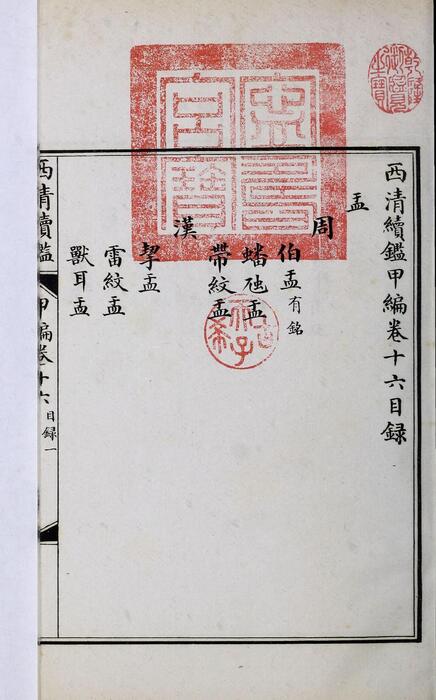 乾隆御覽之寶
西清續鑑甲編卷十六目録
盂
周
伯盂有銘
蟠虺盂
帶紋盂
漢
挈盂
雷紋盂
獸耳盂
西清續鑑 甲編卷十六 目録一